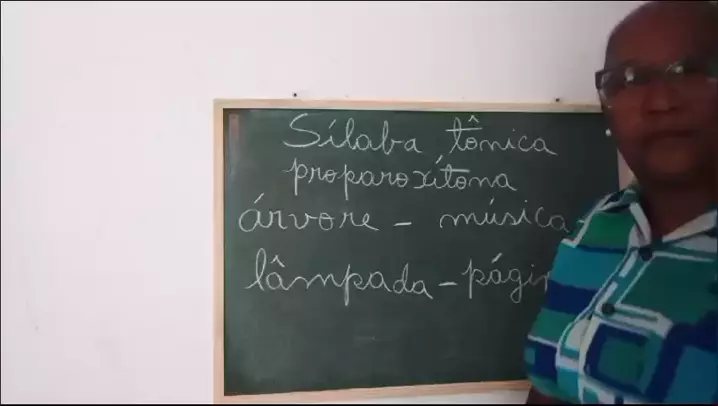 Sílaba tônica
proparoxítona
árvore - música
lâmpada - págin